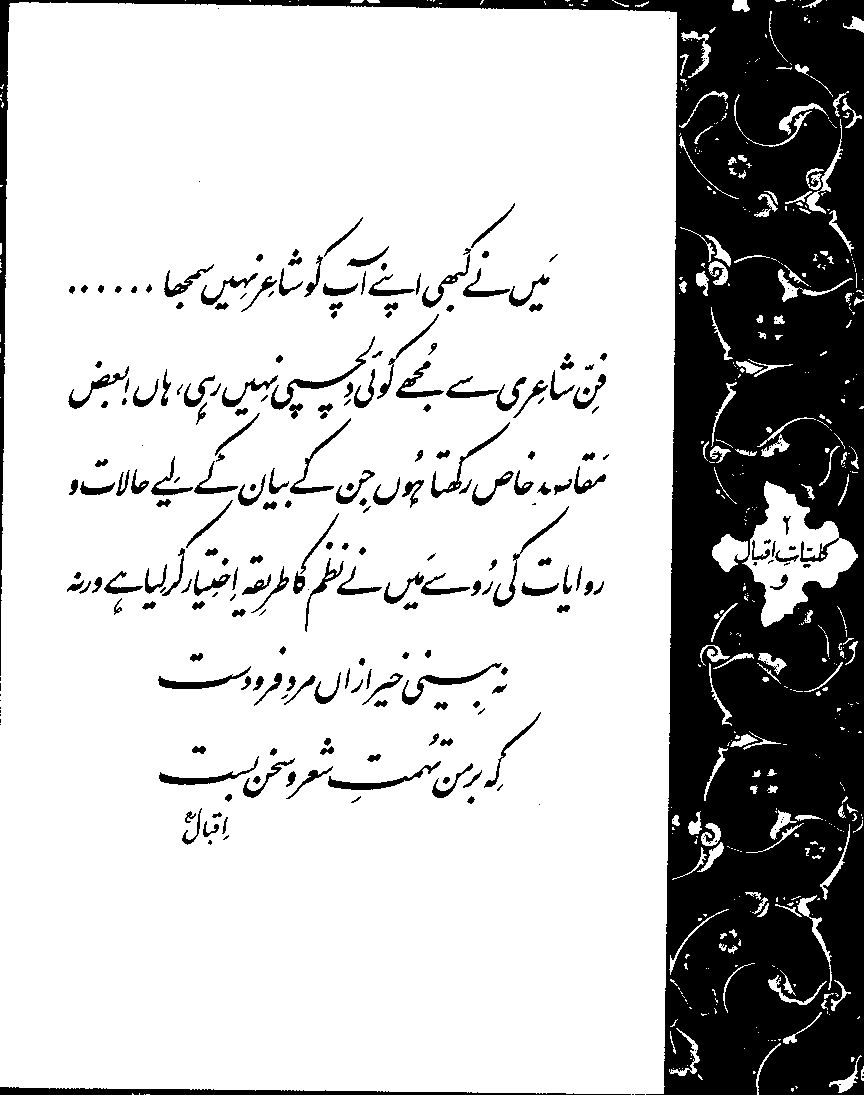 مَیں نے کبھی اپنے آپ کو شاعر نہیں سمجھا ......
فنِّ شاعری سے مُجھے کوئی دِلچسپی نہیں رہی، ہاں بعض
مَقاصدِ خاص رکھتا ہُوں جِن کے بیان کے لِیے حالات و
روایات کی رُو سے مَیں نے نظم کا طریقہ اِختیار کر لیا ہے ورنہ
نہ بِینی خیر ازاں مردِ فرودست
کِہ برمن تُہمتِ شعر و سخن بست
اِقبالؒ
۲
کلّیاتِ اِقبال
و